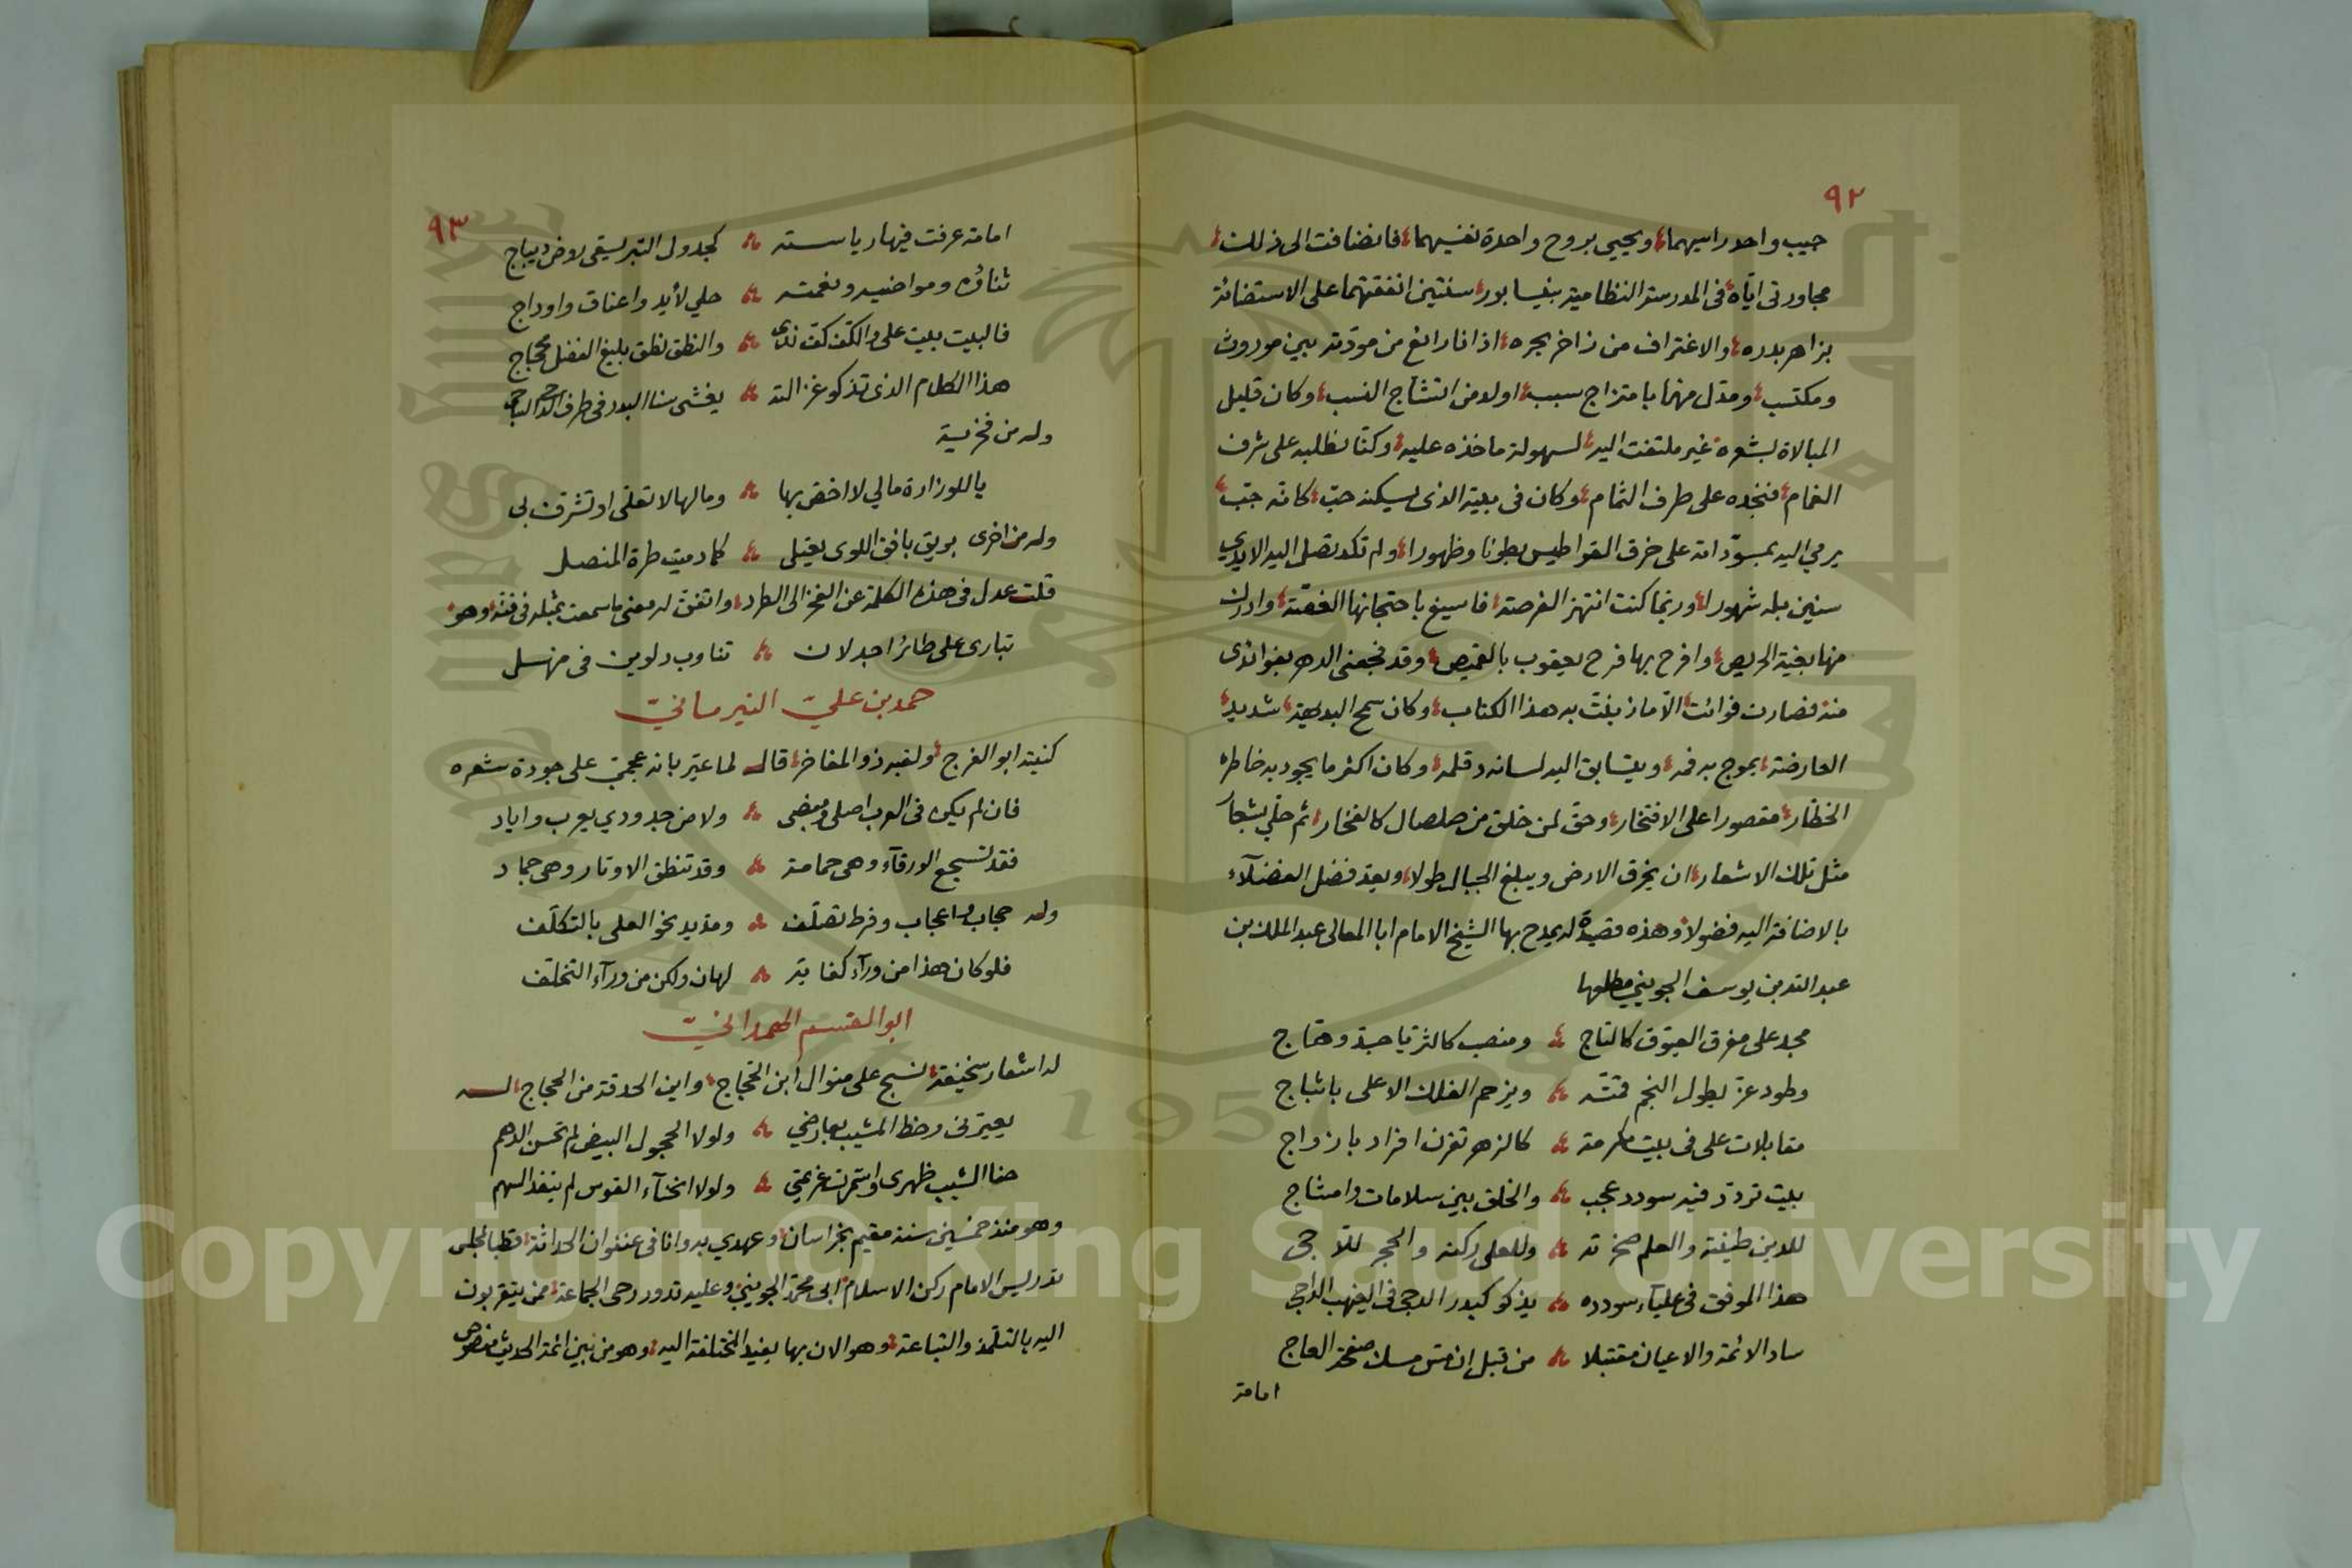 ٩٢
جيب واحد راسيهما ويحيي بروح واحدة نفسيهما فانضافت الى ذلك
مجاورتى اياه فى المدرسة النظامية بنيسابور سنتين انفقتهما على الاستضائة
بزاهر بدره والاغتراف من زاخر بحره اذ انا راتع من مودّته بين موروث
ومكتسب ومدل منها بامتزاج سبب اولا من انتشاج النسب وكان قليل
المبالاة بشعره غير ملتفت اليه لسهولة ماخذه عليه وكنّا نطلبه على شرف
الغمام فنجده على طرف الثمام وكان فى بيته الذى يسكنه حبّ كانّه جبّ
يرمي اليه بمسوّداته على خرق القراطيس بطونا وظهورا ولم تكد تصل اليه الايدي
سنين بله شهورا وربما كنت انتهز الفرصة فاسيغ باحتجانها الغصّة وادرك
منها بغية الحريص وافرح بها فرح يعقوب بالقميص وقد فجعنى الدهر بفوائدى
منه فصارت فوائت الّا ما زينت به هذا الكتاب وكان سمح البديهة شديد
العارضة يموج به فمه ويتسابق اليه لسانه وقلمه وكان اكثر ما يجود به خاطره
الخطّار مقصورا على الافتخار وحق لمن خلق من صلصال كالفخار ثم حلّي بشعار
مثل تلك الاشعار ان يخرق الارض ويبلغ الجبال طولا ويعد فضل الفضلآء
بالاضافة اليه فضولا وهذه قصيدة له يمدح بها الشيخ الامام ابا المعالى عبد الملك بن
عبد الله بن يوسف الجوينى مطلعها
مجد على مفرق العيّوق كالتاج ومنصب كالثريّا جدّ وهّاج
وطود عزّ يطول النجم قمّته ويزحم الفلك الاعلى باثباج
مقابلات على فى بيت مكرمة كالزهر تقرن افراد بازواج
بيت تردّد فيه سودد عجب والخلق بين سلامات وامشاج
للدين طينته والعلم صخرته وللعلى ركنه والحجر للّاجى
هذا الموفق فى عليآء سودده يذكو كبدر الدجى فى الغيهب الداجى
ساد الائمة والاعيان مقتبلا من قبل ان مس مسك صفحة العاج
امامة
٩٣
امامة عرفت فيها رياسته كجدول التبر يسقى روض ديباج
ثناؤه ومواضيه ونعمته حلي لأيد واعناق واوداج
فالبيت بيت على والكف كف ندى والنطق نطق بليغ الفضل محجاج
هذا الكلام الذى تذكو غزالته يغشى سنا البدر فى طرف الدجى الساجى
وله من فخرية
يا للوزارة مالي لا اخص بها وما لها لا تعلّى او تشرف بى
وله من اخرى بويق بافق اللوى يعتيلى كما دميت طرة المنصل
قلت عدل فى هذه الكلمة عن الفخر الى الطرد واتفق له معنى ما سمعت بمثله فى فنّه وهو
تبارى على طائر اجدلان تناوب دلوين فى منهل
حمد بن عليّ النيرمانيّ
كنيته ابو الفرج ولقبه ذو المفاخر قال لما عيّر بانه عجمىّ على جودة شعره
فان لم يكن فى العرب اصلى ومنصبى ولا من جدودي يعرب واياد
فقد تسجع الورقآء وهى حمامة وقد تنطق الاوتار وهى جماد
وله حجاب واعجاب وفرط تصلّف ومدّ يد نحو العلى بالتكلّف
فلو كان هذا من ورآء كفاية لهان ولكن من ورآء التخلّف
ابو القسم الهمدانيّ
له اشعار سخيفة نسج على منوال ابن الحجّاج واين الحدقة من الحجاج له
يعيّرنى وخط المشيب بعارضي ولولا الحجول البيض لم تحسن الدهم
حنا الشيب ظهرى واستمرت عزيمتي ولولا انحنآء القوس لم ينفذ السهم
وهو منذ خمسين سنة مقيم بخراسان وعهدي به وانا فى عنفوان الحداثة قطبا لمجلس
تدريس الامام ركن الاسلام ابى محمّد الجوينىّ وعليه تدور رحى الجماعة ممن يتقربون
اليه بالتلمّذ والتباعة وهو الان بها يفيد المختلفة اليه وهو من بين ائمة الحديث مخصوص